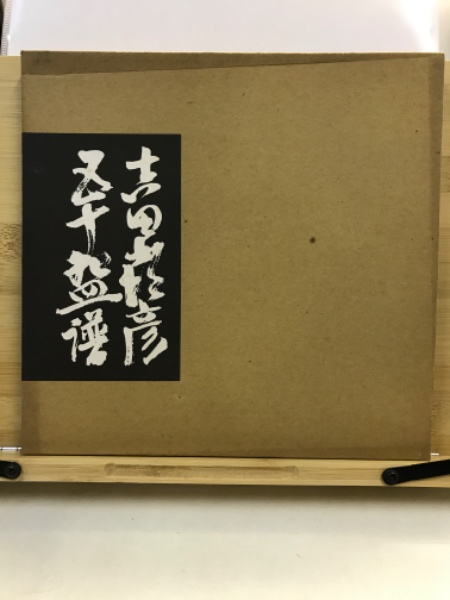 吉田彦
五十盌譜